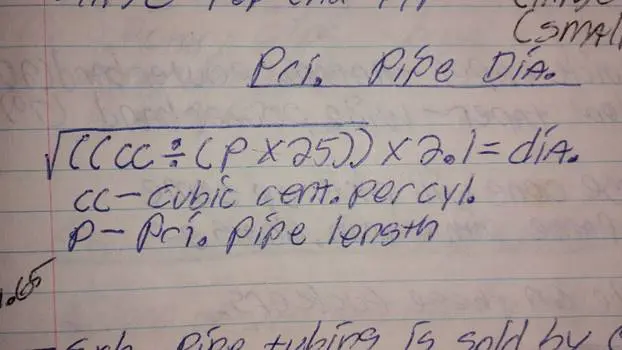 (SMALL
Pri. Pipe Dia.
√((cc ÷ (P x 25)) x 2.1 = dia.
cc - cubic cent. per cyl.
P - Pri. Pipe length
.65
pipe tubing is sold by